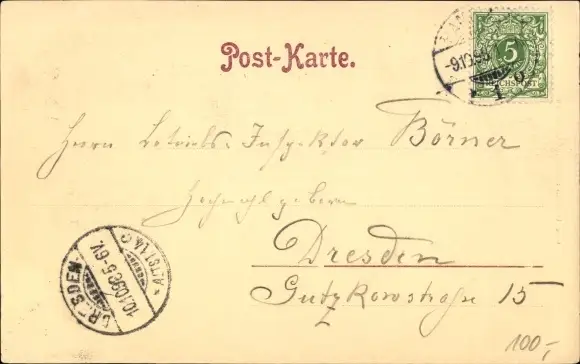 Post-Karte.
5
REICHSPOST
-9.10.98
Herrn Betriebs-Inspektor Börner
Hochwohlgeboren
Dresden
Gutzkowstraße 15
DRESDEN-ALTST. 1
10.10.98. 5-6V.
100,-